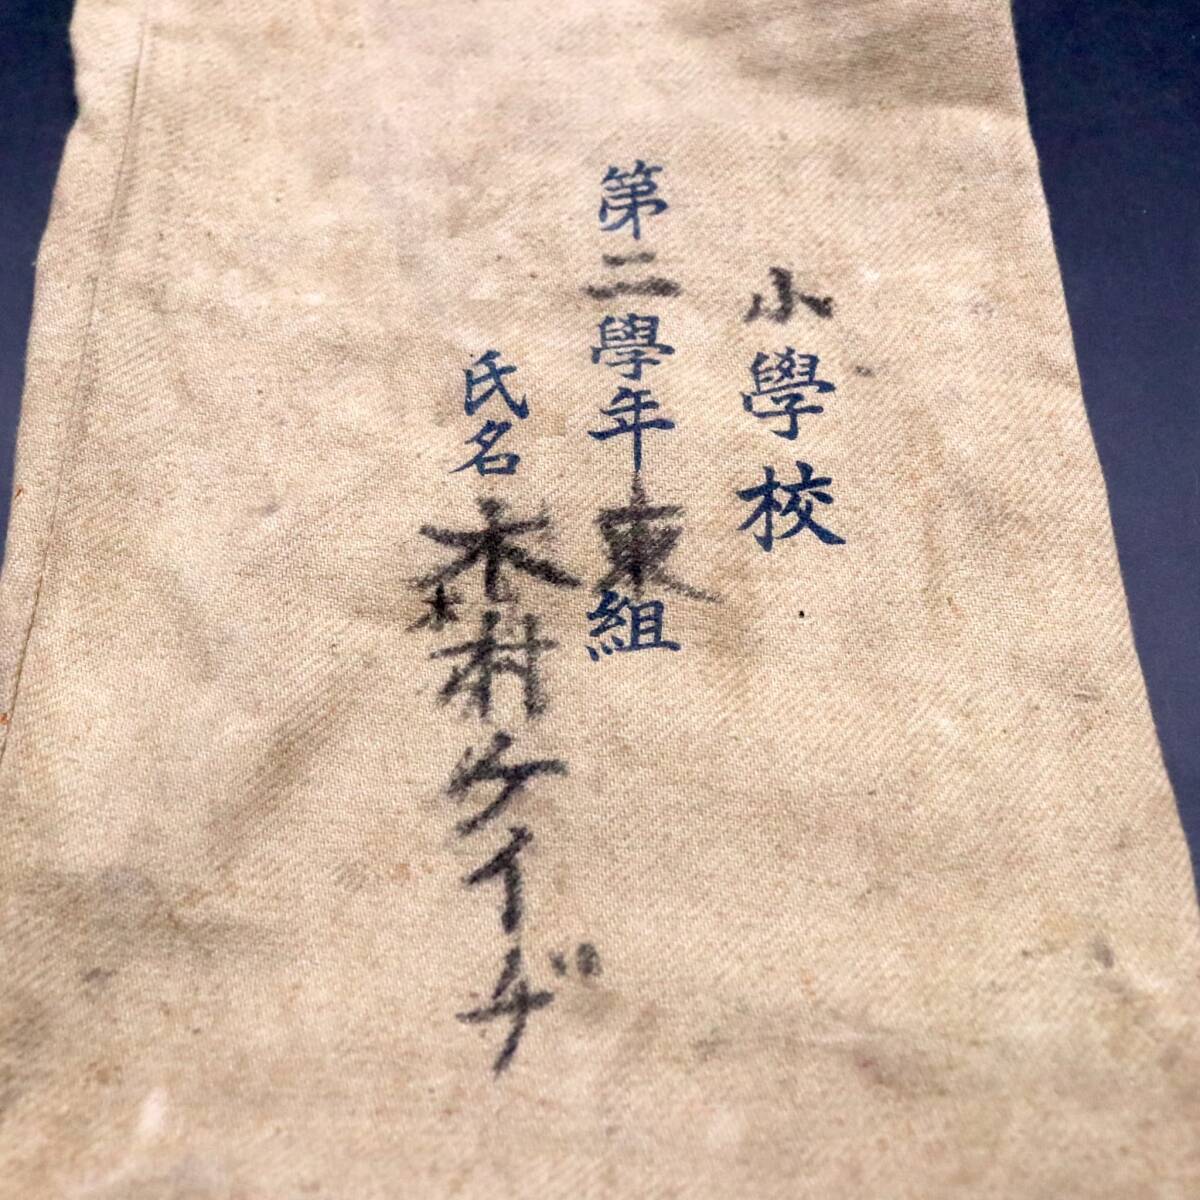 小學校
第二學年東組
氏名 木村ケイヂ